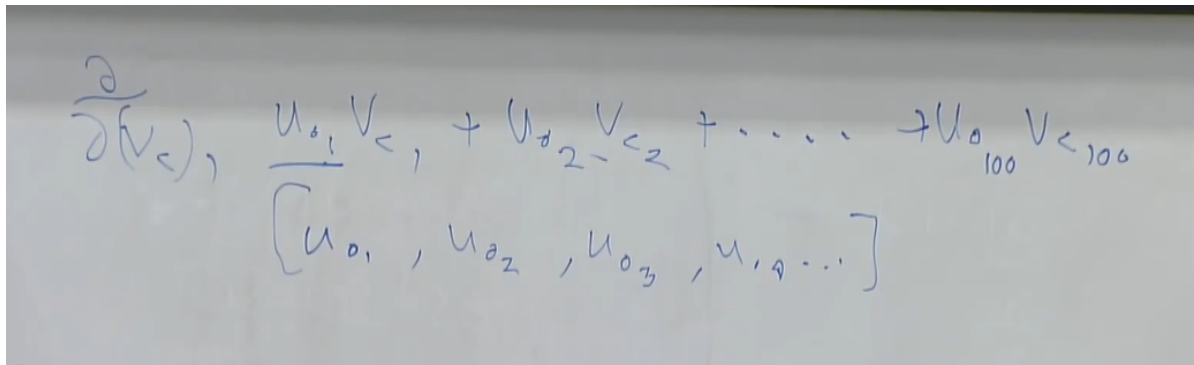 ∂/∂(v_c)_1 u_{o_1} v_{c_1} + u_{o_2} v_{c_2} + ..... + u_{o_100} v_{c_100}
[u_{o_1}, u_{o_2}, u_{o_3}, u...]